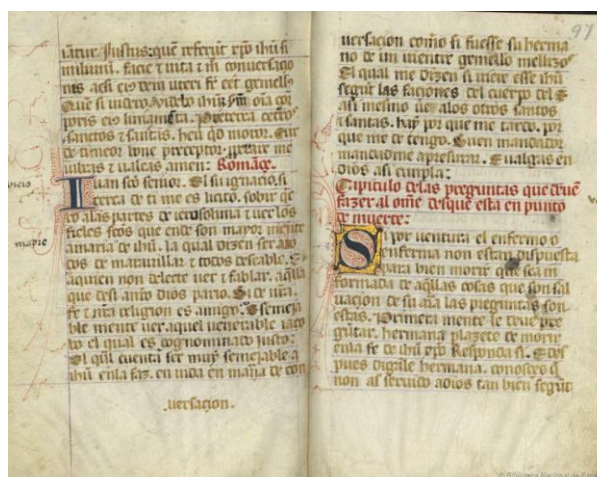 iatur Justus: quē referūt xpo ihū si
milimū. facie & uita & ih conuersacio
nis acsi eiꝰdem uteri fr̄ eēt gemellꝰ
corporis eiꝰ liniamēta. Preterea ceterꝰ
sanctos & santas. heu qd moror. Cur
de tineor bone preceptor. parare me
iubeas & ualeas amen: Romāçe.
Iuan scō señor. El su ignacio. si
cerca de ti me es licito. sobir qͥe
ro alas partes de ierosolima & uer los
fieles scōs que ende son mayor mente
amaria de ihū. la qual dizen ser a
cos de marauillar & todos deseable. E
aquien non delecte uer & fablar. aq̄lla
que desi anto dios pario. Si de nr̄a
fe & nr̄a religion es amigo. E semeja
ble mente uer aquel uenerable iaco
bo el qual es cognominado justo:
El ql̄ cuentā ser muy semejable a
ihū enla faz. en uida en maña de con
uersaçion.
97
uersacion como si fuesse su herma
no de un uientre gemello mellizo
El qual me dizen si uiere uere esse ihū
segūt las faciones del cuerpo del E
asi mesmo ue alos otros santos
& santas. hay por que me tardo. por
que me de tengo. Buen mandador
mandaome apresurar. E ualgas en
dios asi cunpla:
Capitulo delas preguntas que deuē
fazer al ome desque esta en punto
de muerte:
Si por uentura el enfermo o
enferma non estan dispuesta
para bien morir que sea in
formada de aq̄llas cosas que son sal
uacion de su aīa las preguntas son
estas. Primera mente le deue pre
gūtar. hermana plazete de morir
enla fe de ihū xpo Responda si. E des
pues digāle hermana. conosces q̄
non as seruido adios tan bien segūt
© Biblioteca Nacional de España